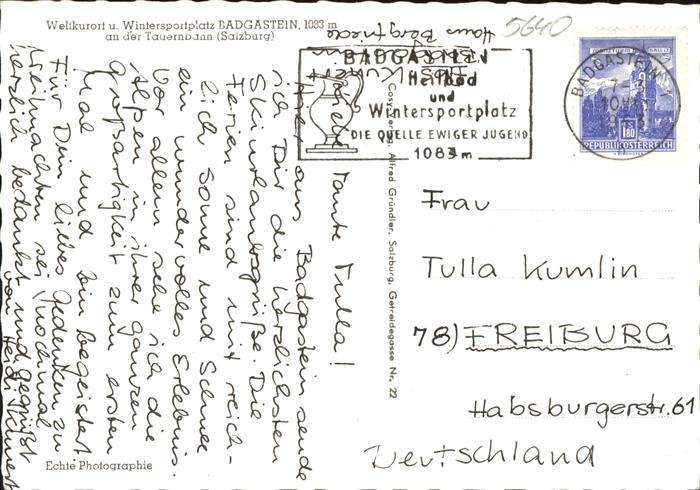 Weltkurort u. Wintersportplatz BADGASTEIN, 1083 m
an der Tauernbahn (Salzburg)
5640
Haus Bergfriede
BADGASTEIN
Heilbad
und
Wintersportplatz
DIE QUELLE EWIGER JUGEND
1083 m
BADGASTEIN 1
REPUBLIK ÖSTERREICH
1.80
Copyright Alfred Gründler, Salzburg, Getreidegasse Nr. 22
Liebe Tante Tulla!
Hier aus Badgastein sende
ich Dir die herzlichsten
Skiurlaubsgrüße. Die
Ferien sind mit reich-
lich Sonne und Schnee
ein wundervolles Erlebnis.
Vor allem sehe ich die
Alpen in ihrer ganzen
Großartigkeit zum ersten
Mal und bin begeistert.
Für Dein liebes Gedenken zu
Weihnachten sei nochmal
herzlich bedankt und gegrüßt
von Heidi
Frau
Tulla Kumlin
78) FREIBURG
Habsburgerstr. 61
Deutschland
Echte Photographie